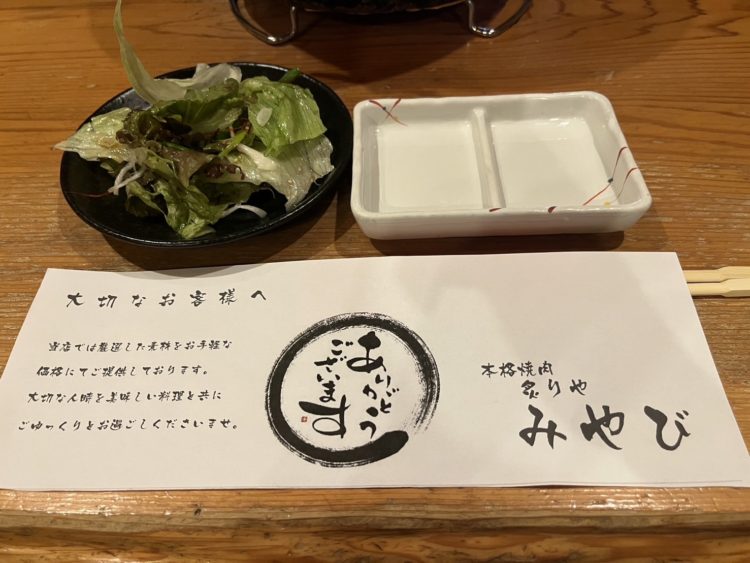 大切なお客様へ
当店では厳選した素材をお手軽な
価格にてご提供しております。
大切な人時を美味しい料理と共に
ごゆっくりとお過ごしくださいませ。
ありがとう
ございます
本格焼肉
炙りや
みやび